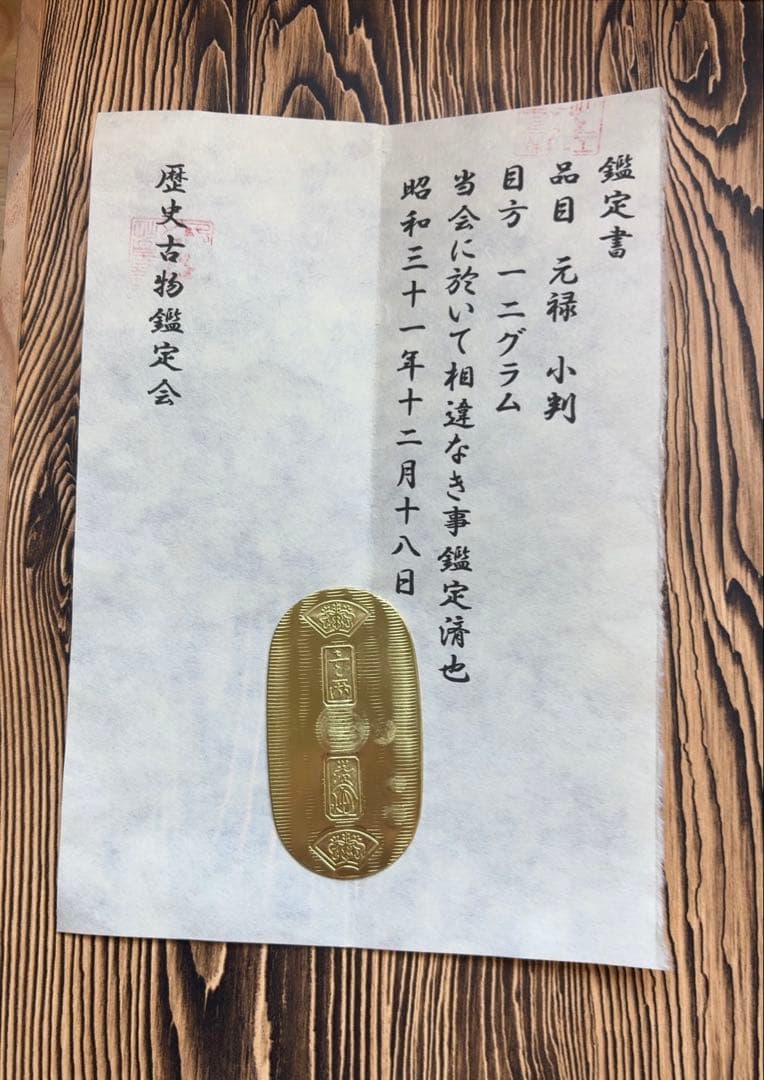 鑑定書
品目 元禄 小判
目方 一二グラム
当会に於いて相違なき事鑑定済也
昭和三十一年十二月十八日
歴史古物鑑定会